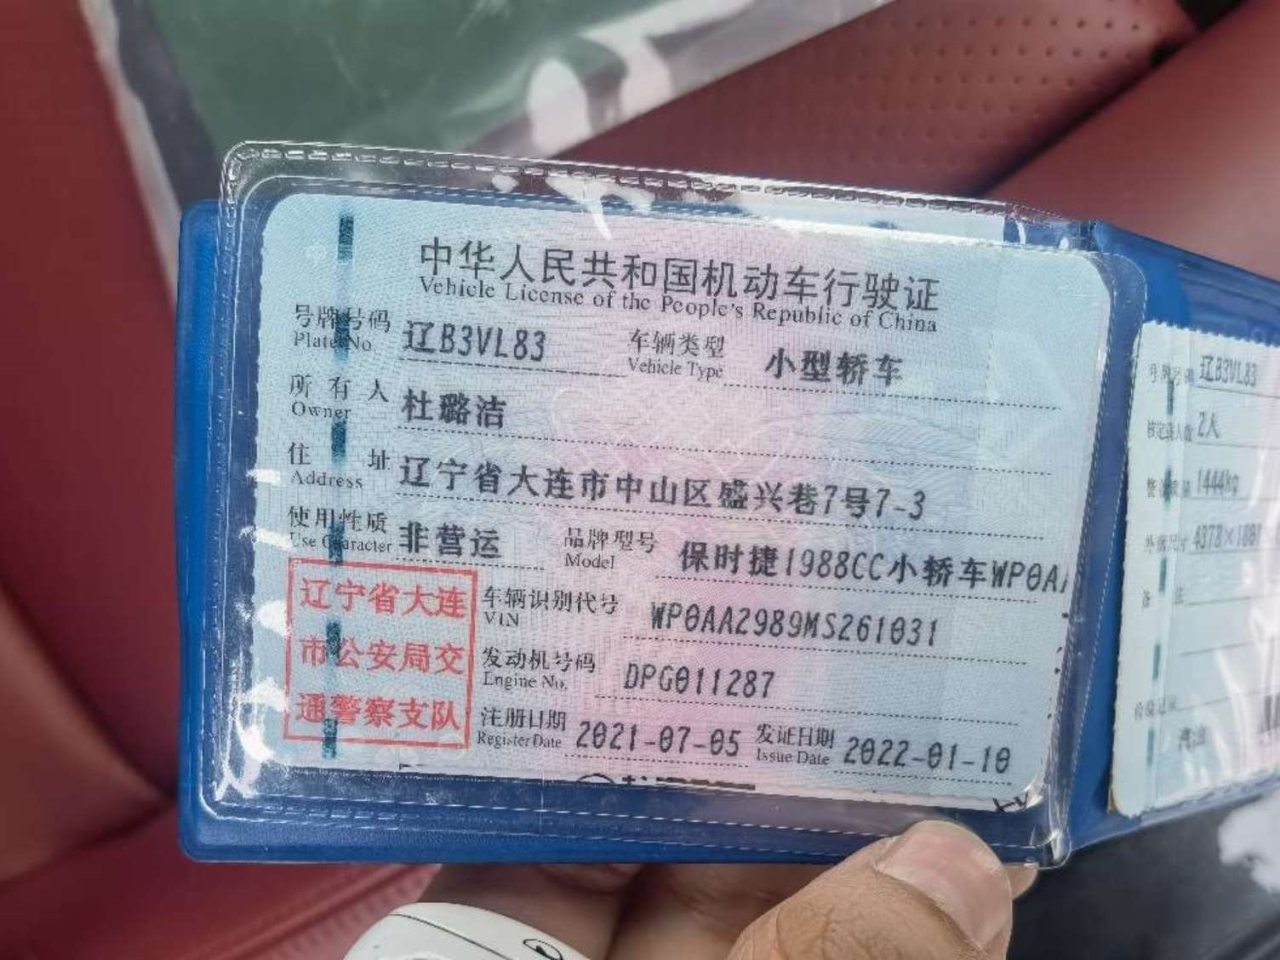 中华人民共和国机动车行驶证
Vehicle License of the People's Republic of China
号牌号码 辽B3VL83 车辆类型 小型轿车
Plate No. Vehicle Type
所有人 杜璐洁
Owner
住址 辽宁省大连市中山区盛兴巷7号7-3
Address
使用性质 非营运 品牌型号 保时捷1988CC小轿车WP0AA
Use Character Model
辽宁省大连
市公安局交
通警察支队
车辆识别代号 WP0AA2989MS261031
VIN
发动机号码 DPG011287
Engine No.
注册日期 2021-07-05 发证日期 2022-01-10
Register Date Issue Date
号牌号码 辽B3VL83
核定载人数 2人
整备质量 1444kg
外廓尺寸 4378×1801
备注
检验记录
汽油